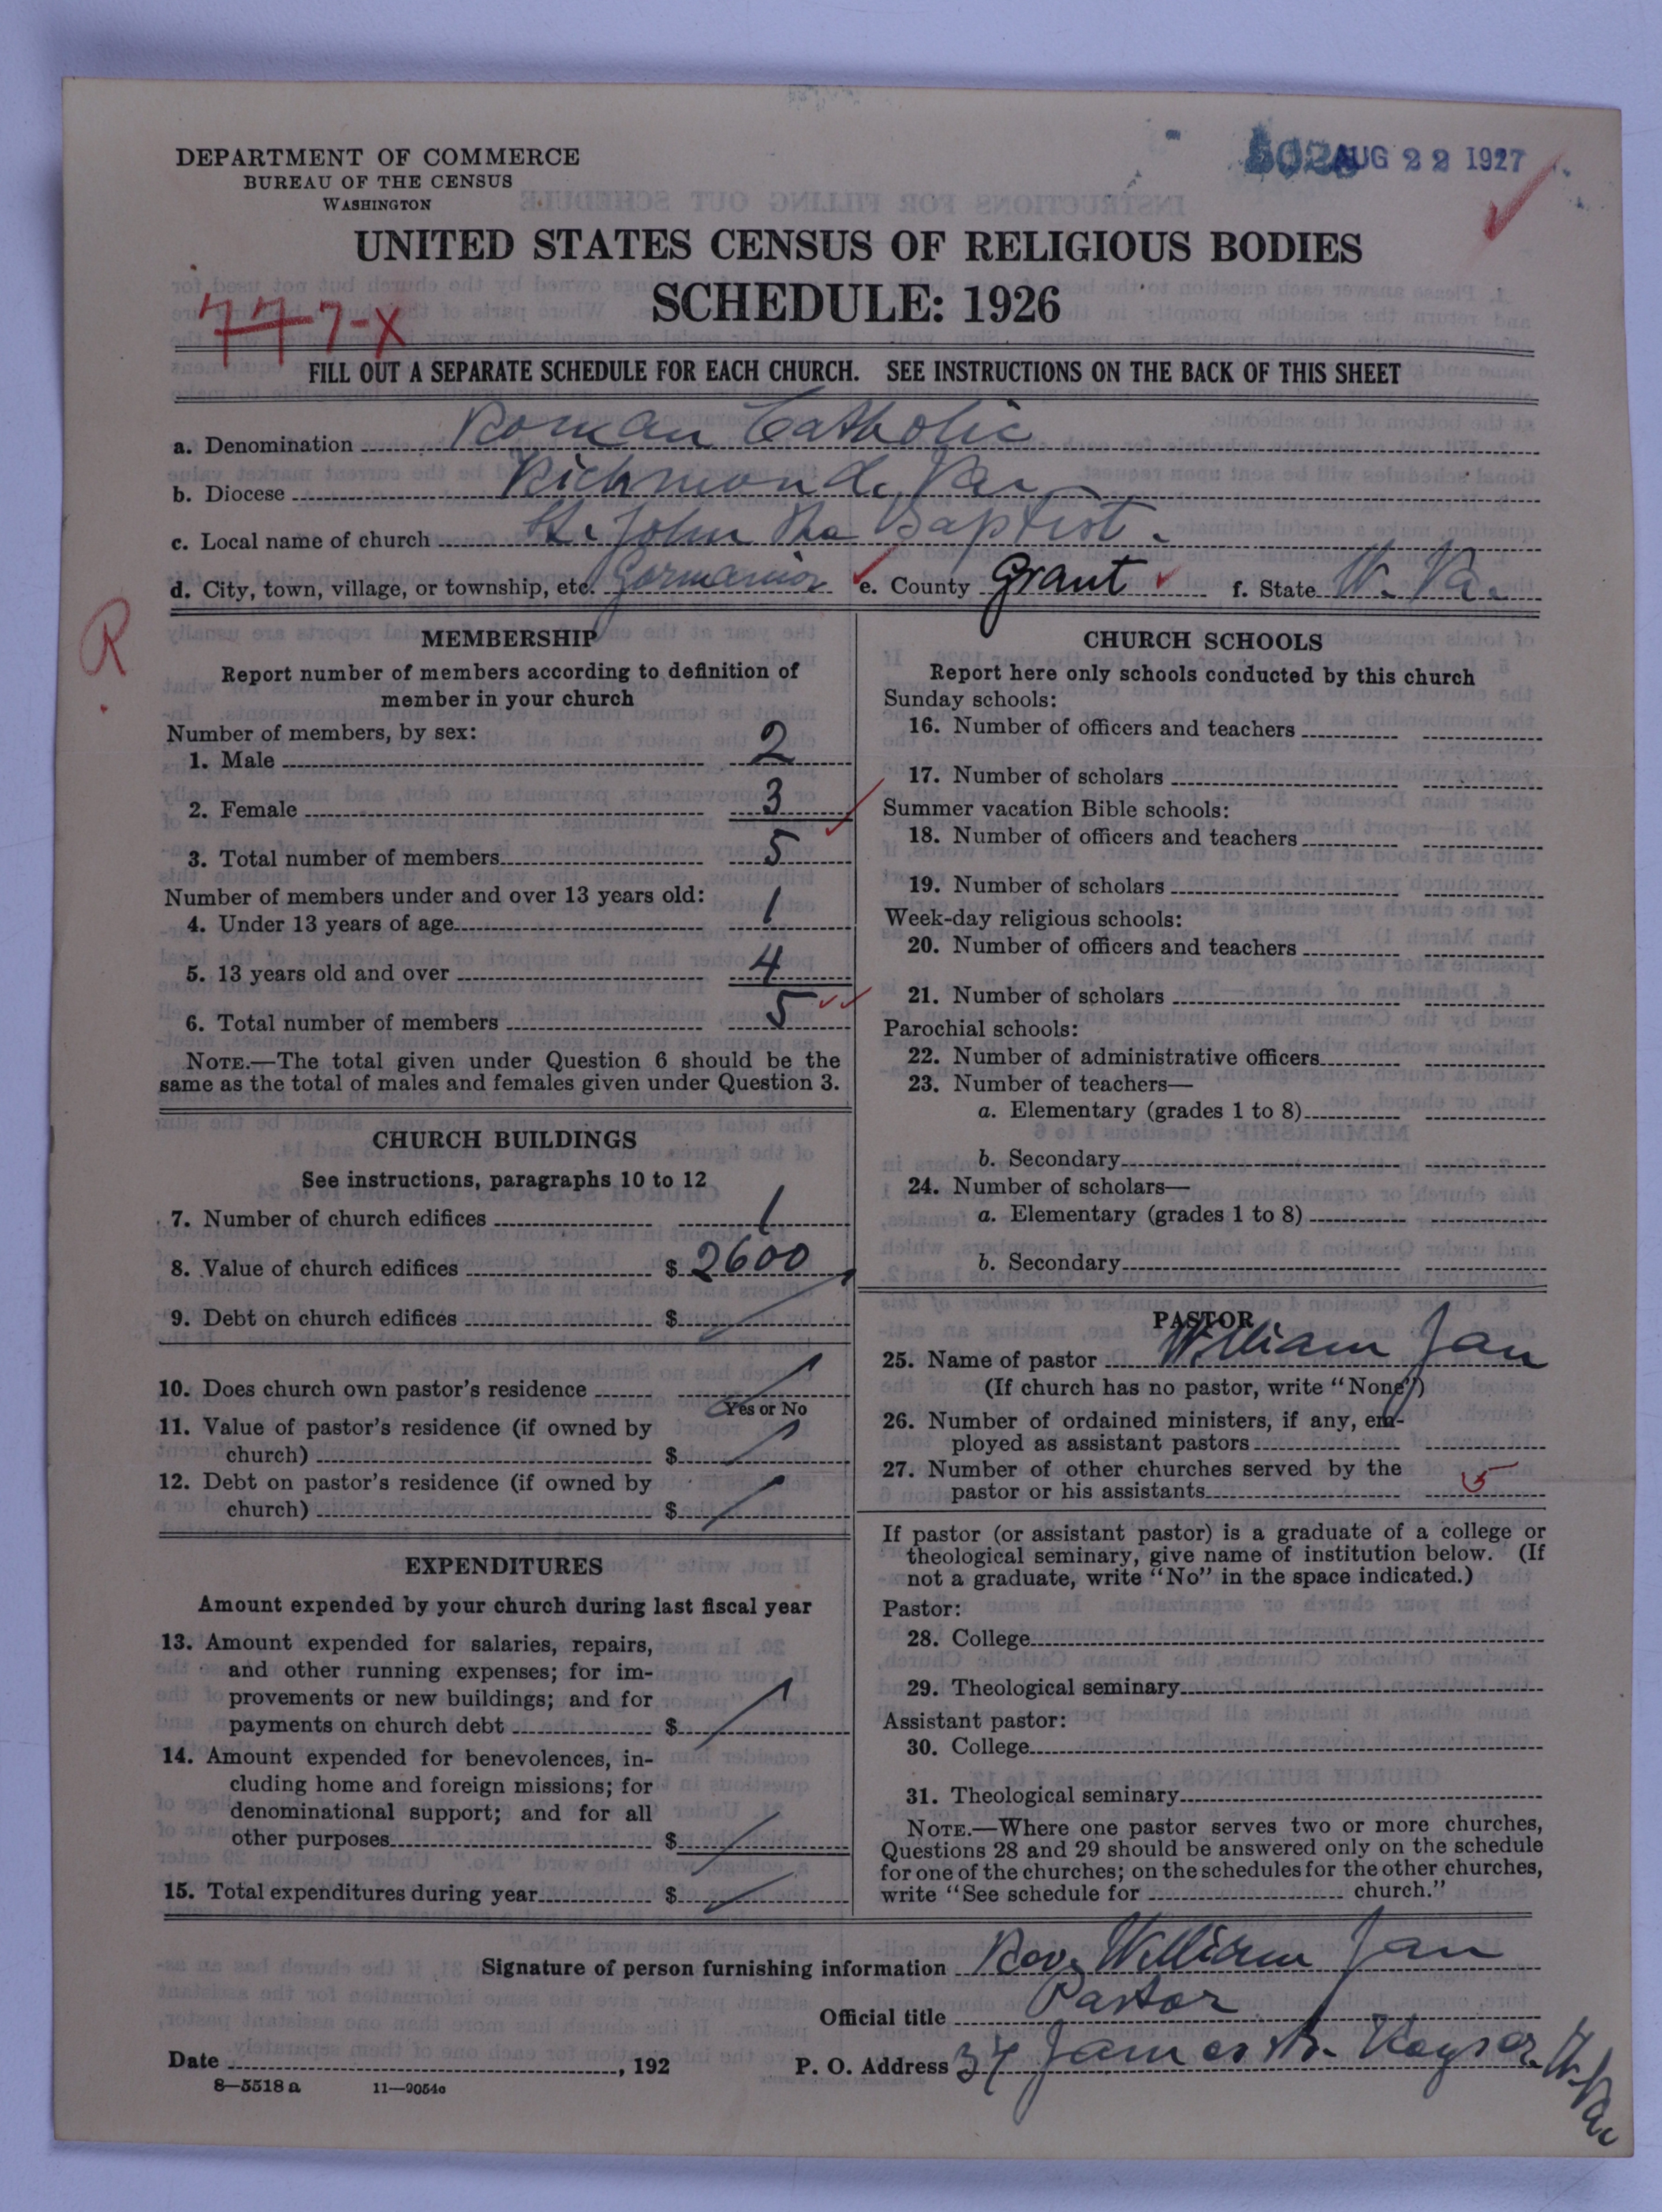 DEPARTMENT OF COMMERCE
BUREAU OF THE CENSUS
WASHINGTON
AUG 22 1927
UNITED STATES CENSUS OF RELIGIOUS BODIES
SCHEDULE: 1926
777-X
FILL OUT A SEPARATE SCHEDULE FOR EACH CHURCH. SEE INSTRUCTIONS ON THE BACK OF THIS SHEET
a. Denomination Roman Catholic
b. Diocese Richmond, Va.
c. Local name of church St. John the Baptist.
d. City, town, village, or township, etc. Gormania e. County Grant f. State W. Va.
R
MEMBERSHIP
Report number of members according to definition of
member in your church
Number of members, by sex:
1. Male 2
2. Female 3
3. Total number of members 5
Number of members under and over 13 years old:
4. Under 13 years of age 1
5. 13 years old and over 4
6. Total number of members 5
NOTE.—The total given under Question 6 should be the
same as the total of males and females given under Question 3.
CHURCH BUILDINGS
See instructions, paragraphs 10 to 12
7. Number of church edifices 1
8. Value of church edifices $ 2600
9. Debt on church edifices $
10. Does church own pastor's residence
Yes or No
11. Value of pastor's residence (if owned by
church) $
12. Debt on pastor's residence (if owned by
church) $
EXPENDITURES
Amount expended by your church during last fiscal year
13. Amount expended for salaries, repairs,
and other running expenses; for im-
provements or new buildings; and for
payments on church debt $
14. Amount expended for benevolences, in-
cluding home and foreign missions; for
denominational support; and for all
other purposes $
15. Total expenditures during year $
CHURCH SCHOOLS
Report here only schools conducted by this church
Sunday schools:
16. Number of officers and teachers
17. Number of scholars
Summer vacation Bible schools:
18. Number of officers and teachers
19. Number of scholars
Week-day religious schools:
20. Number of officers and teachers
21. Number of scholars
Parochial schools:
22. Number of administrative officers
23. Number of teachers—
a. Elementary (grades 1 to 8)
b. Secondary
24. Number of scholars—
a. Elementary (grades 1 to 8)
b. Secondary
PASTOR
25. Name of pastor William Jan
(If church has no pastor, write "None")
26. Number of ordained ministers, if any, em-
ployed as assistant pastors
27. Number of other churches served by the
pastor or his assistants 5
If pastor (or assistant pastor) is a graduate of a college or
theological seminary, give name of institution below. (If
not a graduate, write "No" in the space indicated.)
Pastor:
28. College
29. Theological seminary
Assistant pastor:
30. College
31. Theological seminary
NOTE.—Where one pastor serves two or more churches,
Questions 28 and 29 should be answered only on the schedule
for one of the churches; on the schedules for the other churches,
write "See schedule for church."
Signature of person furnishing information Rev. William Jan
Official title Pastor
Date , 192 P. O. Address 34 James St. Keyser, W. Va.
8—5518 a 11—9054a